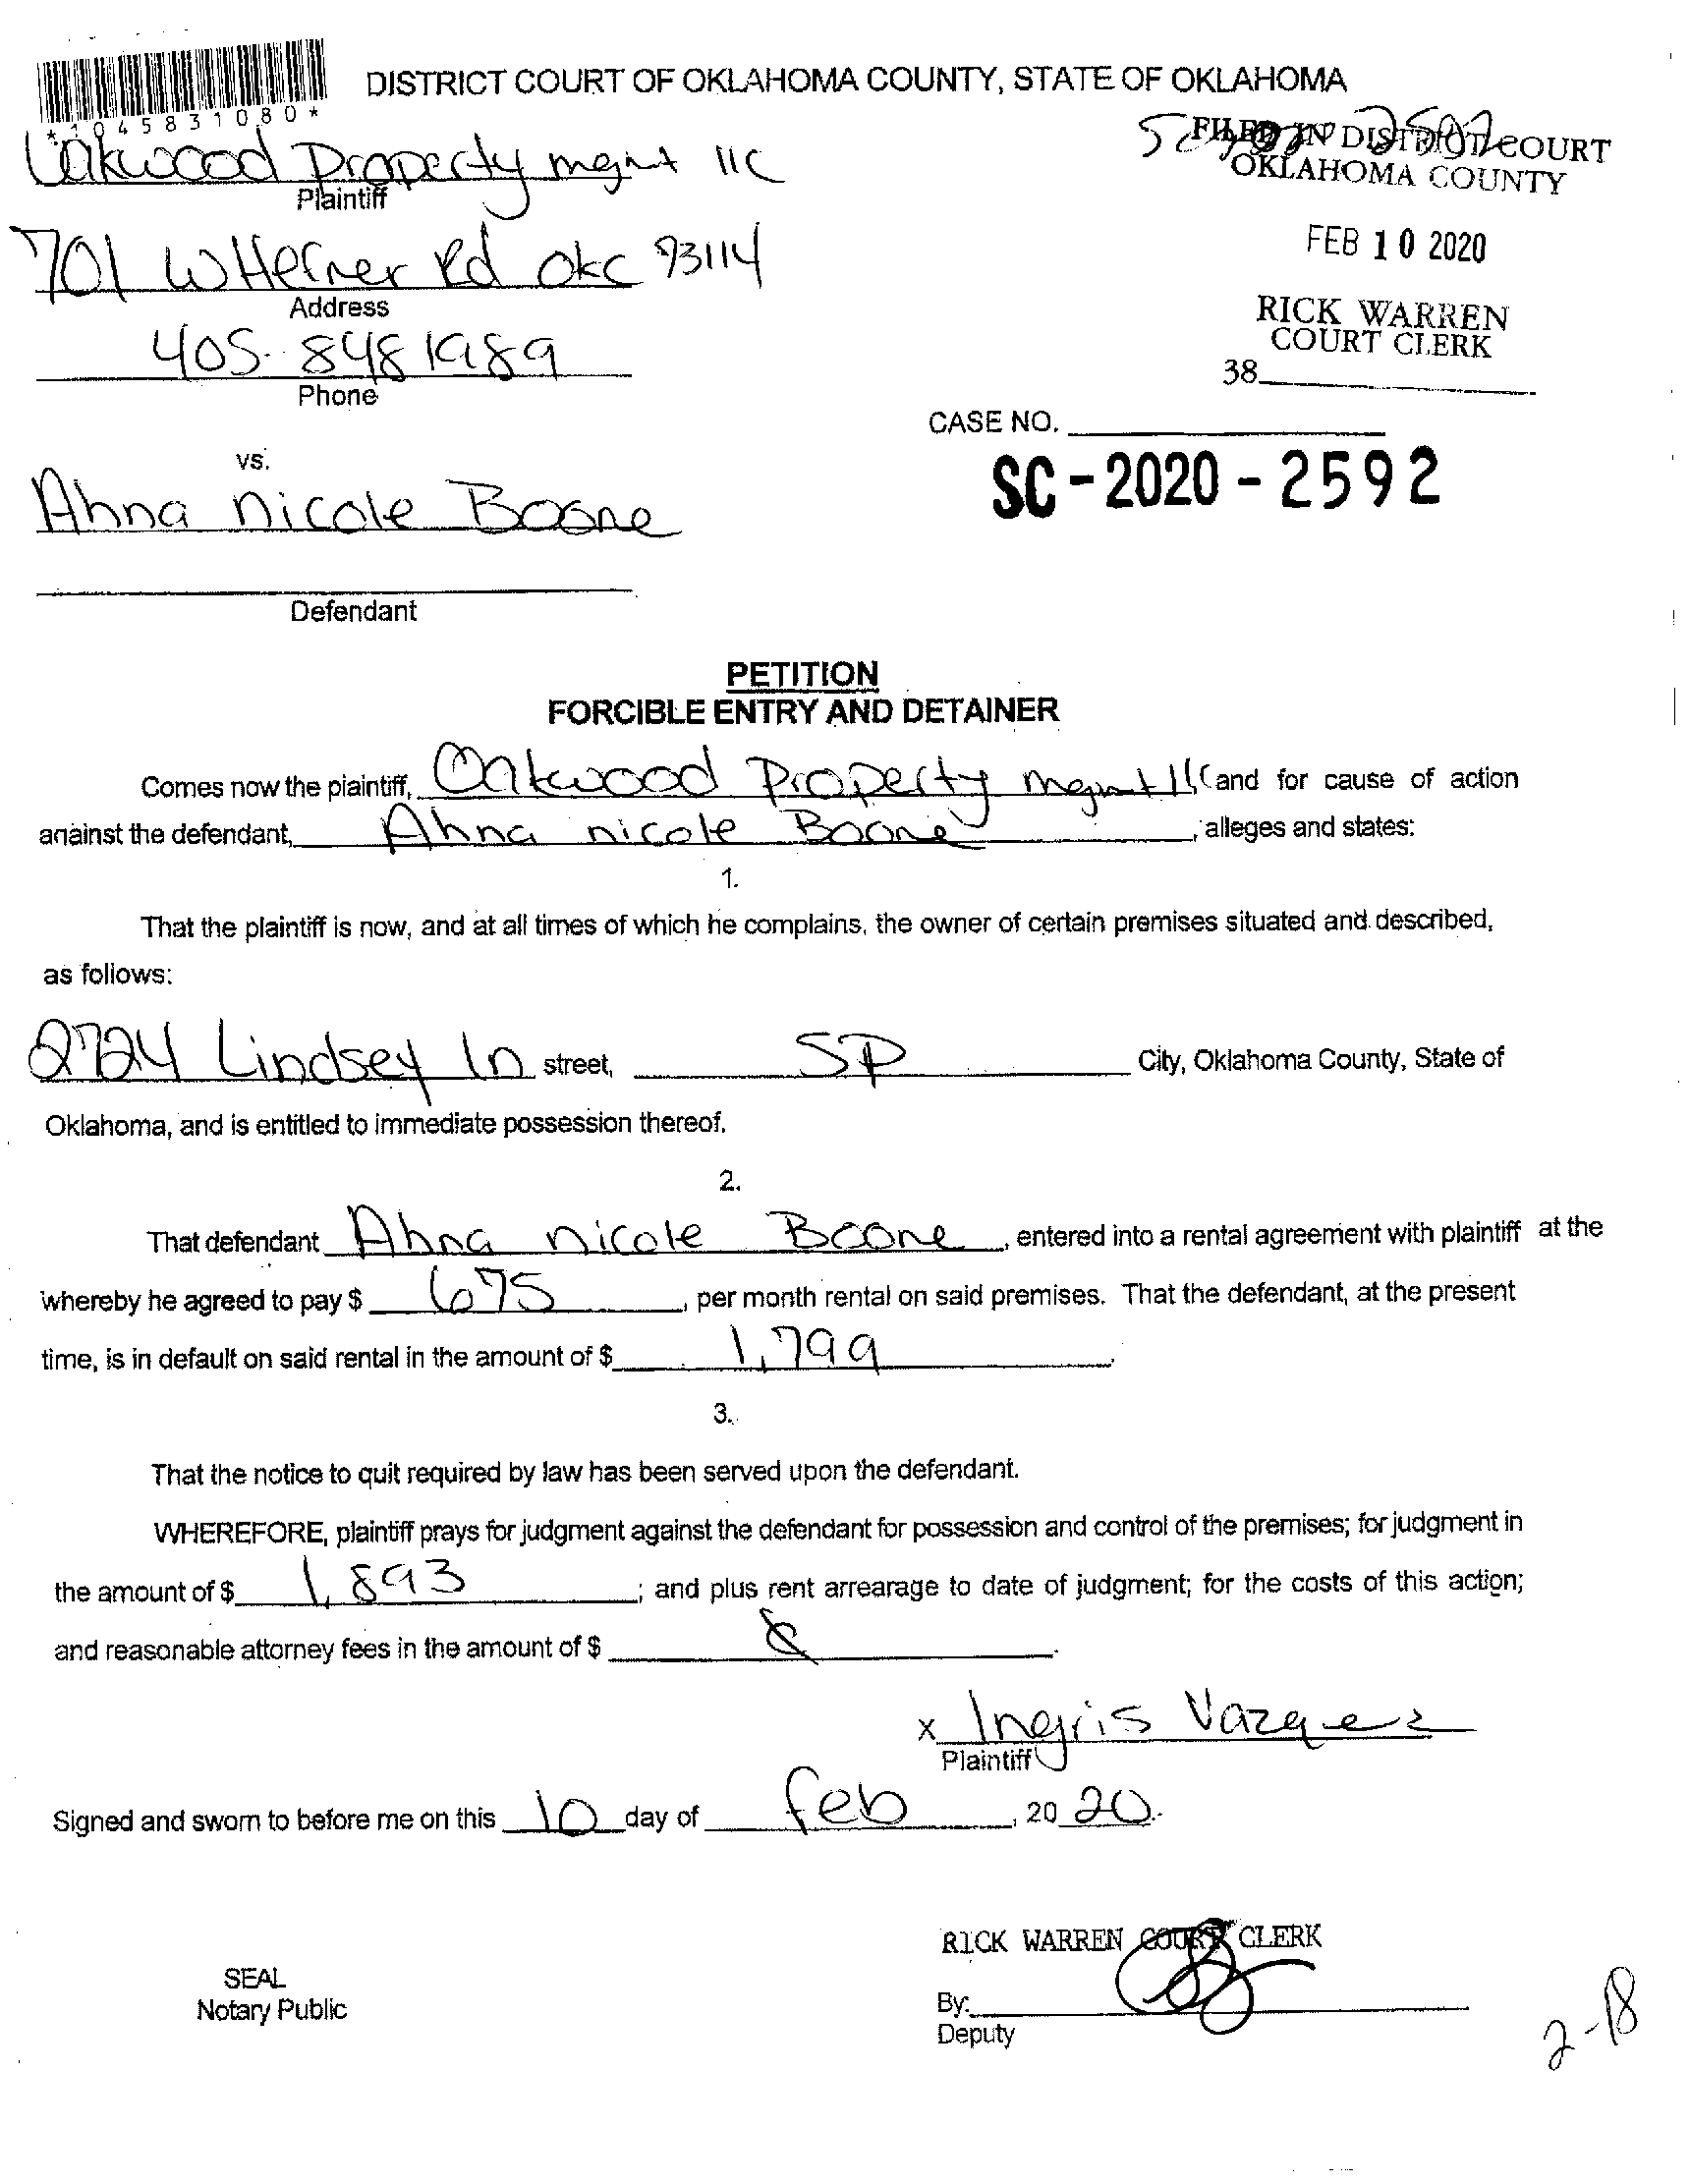 DISTRICT COURT OF OKLAHOMA COUNTY, STATE OF OKLAHOMA
*1045831080*
Oakwood Property mgmt llc
Plaintiff
FILED IN DISTRICT COURT
OKLAHOMA COUNTY
701 W Hefner Rd okc 73114
Address
FEB 10 2020
405-848 1989
Phone
RICK WARREN
COURT CLERK
38
CASE NO.
SC-2020-2592
vs.
Ahna nicole Boone
Defendant
PETITION
FORCIBLE ENTRY AND DETAINER
Comes now the plaintiff, Oakwood Property mgmt llc and for cause of action
against the defendant, Ahna nicole Boone, alleges and states:
1.
That the plaintiff is now, and at all times of which he complains, the owner of certain premises situated and described,
as follows:
2724 Lindsey ln street, SP City, Oklahoma County, State of
Oklahoma, and is entitled to immediate possession thereof.
2.
That defendant Ahna nicole Boone, entered into a rental agreement with plaintiff at the
whereby he agreed to pay $ 675, per month rental on said premises. That the defendant, at the present
time, is in default on said rental in the amount of $ 1,799.
3.
That the notice to quit required by law has been served upon the defendant.
WHEREFORE, plaintiff prays for judgment against the defendant for possession and control of the premises; for judgment in
the amount of $ 1,893; and plus rent arrearage to date of judgment; for the costs of this action;
and reasonable attorney fees in the amount of $
x Ingris Vazquez
Plaintiff
Signed and sworn to before me on this 10 day of feb, 20 20.
RICK WARREN COURT CLERK
SEAL
Notary Public
By:
Deputy
2-18